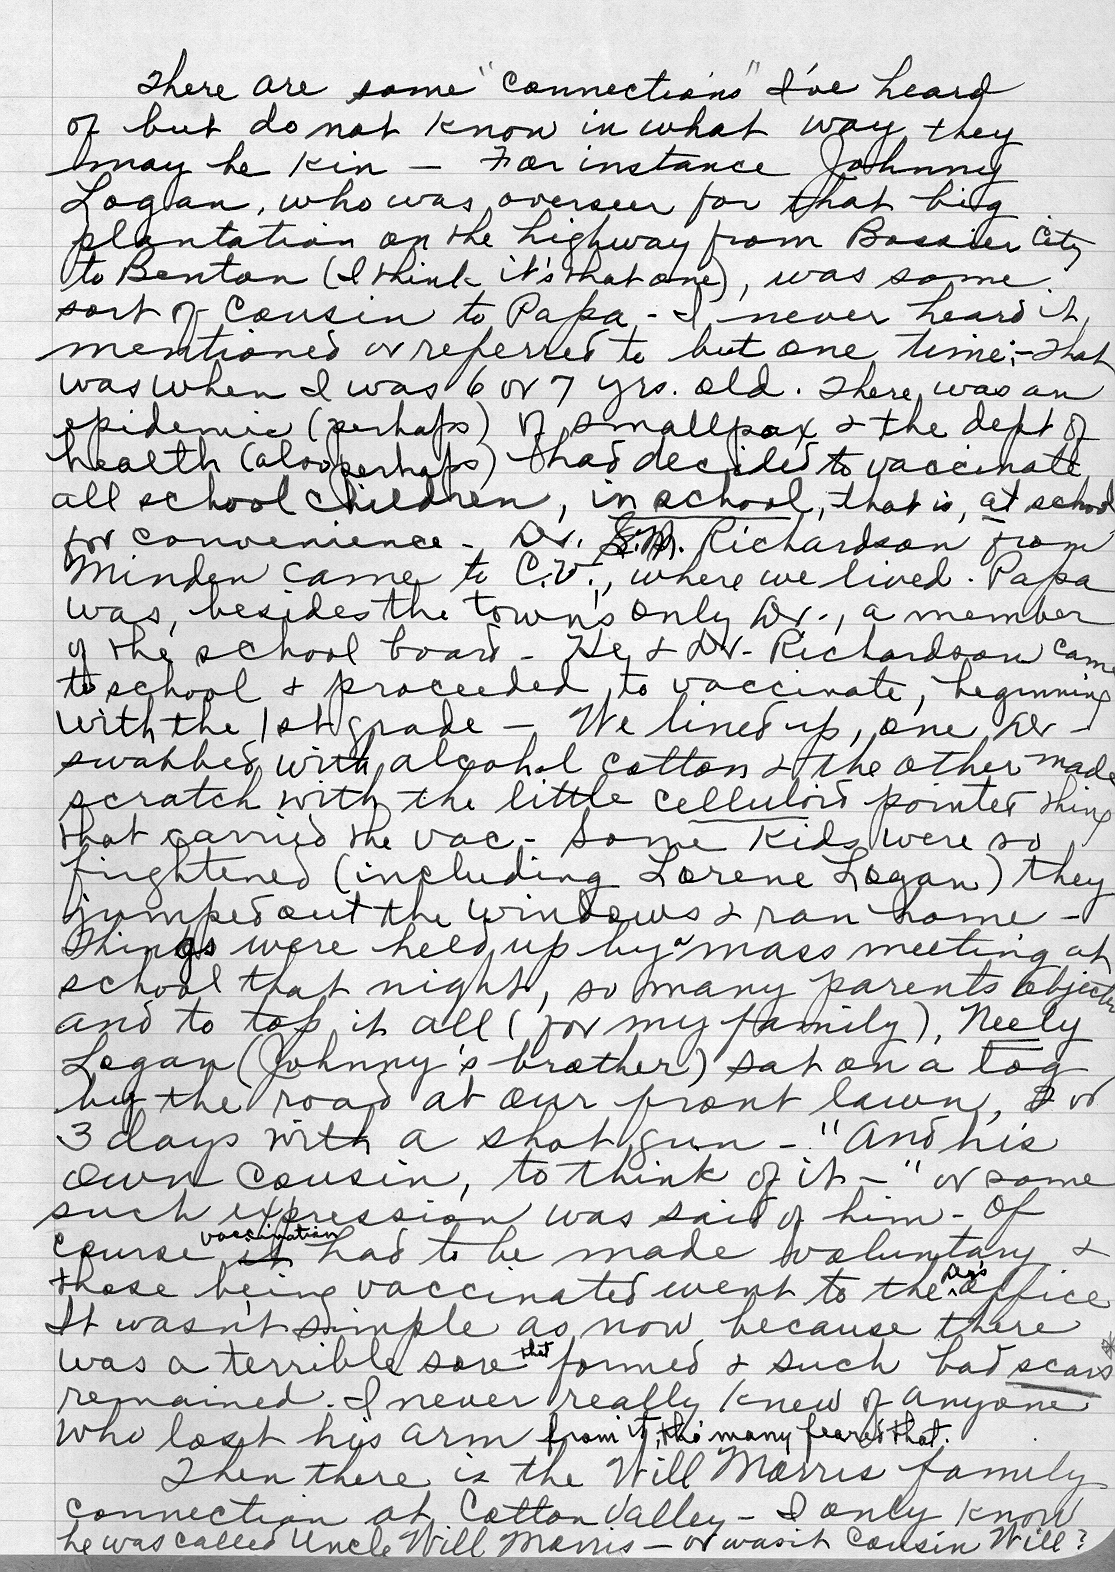 There are some "connections" I've heard
of but do not know in what way they
may be kin — For instance Johnny
Logan, who was overseer for that big
plantation on the highway from Bossier City
to Benton (I think it's that one), was some
sort of Cousin to Papa - I never heard it
mentioned or referred to but one time; - That
was when I was 6 or 7 yrs. old. There was an
epidemic (perhaps) of smallpox & the dept of
health (also perhaps) had decided to vaccinate
all school children, in school, that is, at school
for convenience - Dr. S.M. Richardson from
Minden came to C.V., where we lived. Papa
was, besides the town's only Dr., a member
of the school board - He & Dr. Richardson came
to school & proceeded to vaccinate, beginning
with the 1st grade — We lined up, one Dr -
swabbed with alcohol cotton & the other made
scratch with the little celluloid pointed thing
that carried the vac - Some kids were so
frightened (including Lorene Logan) they
jumped out the windows & ran home -
Things were held up by a mass meeting at
school that night, so many parents objected
and to top it all (for my family), Neely
Logan (Johnny's brother) sat on a log
by the road at our front lawn, 2 or
3 days with a shot gun - "And his
own cousin, to think of it - " or some
such expression was said of him - Of
course vaccination had to be made voluntary &
those being vaccinated went to the Dr's office
It wasn't simple as now because there
was a terrible sore that formed & such bad scars*
remained. I never really knew of anyone
who lost his arm from it, tho many feared that.
Then there is the Will Morris family
connection at Cotton Valley - I only know
he was called Uncle Will Morris — or was it Cousin Will?